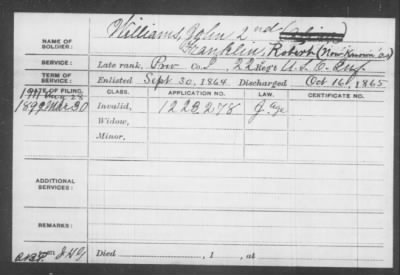 Williams, John 2nd (alias)
NAME OF SOLDIER: Franklin, Robert (Now Known as)
SERVICE: Late rank, Priv Co. I, 22 Regt U.S.C. Inf.
TERM OF SERVICE: Enlisted Sept 30, 1864 Discharged Oct 16, 1865
DATE OF FILING. CLASS. APPLICATION NO. LAW. CERTIFICATE NO.
1899 Mar 30 Invalid, 1223278
Widow,
Minor,
ADDITIONAL SERVICES:
REMARKS:
Died , 1 , at